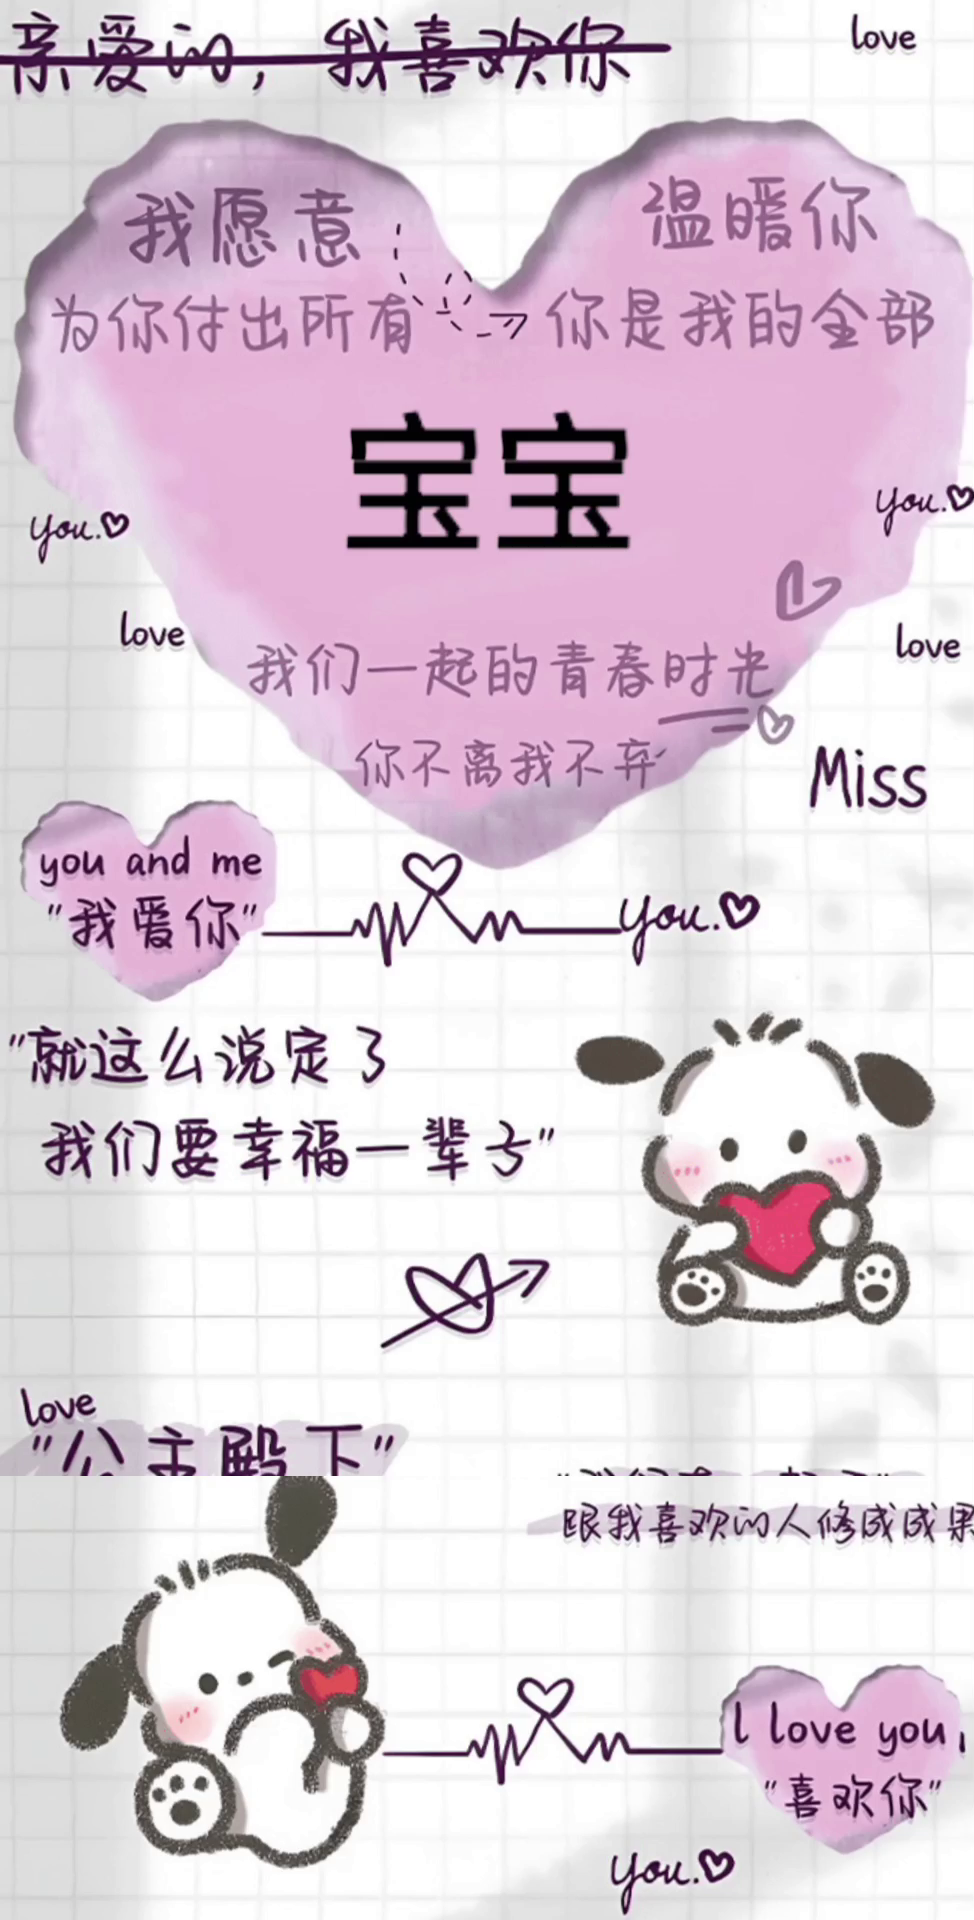 亲爱的，我喜欢你
love
我愿意
温暖你
为你付出所有
你是我的全部
宝宝
you.
you.
love
love
我们一起的青春时光
你不离我不弃
Miss
you and me
"我爱你"
you.
"就这么说定了
我们要幸福一辈子"
love
"公主殿下"
跟我喜欢的人修成成果
l love you,
"喜欢你"
you.